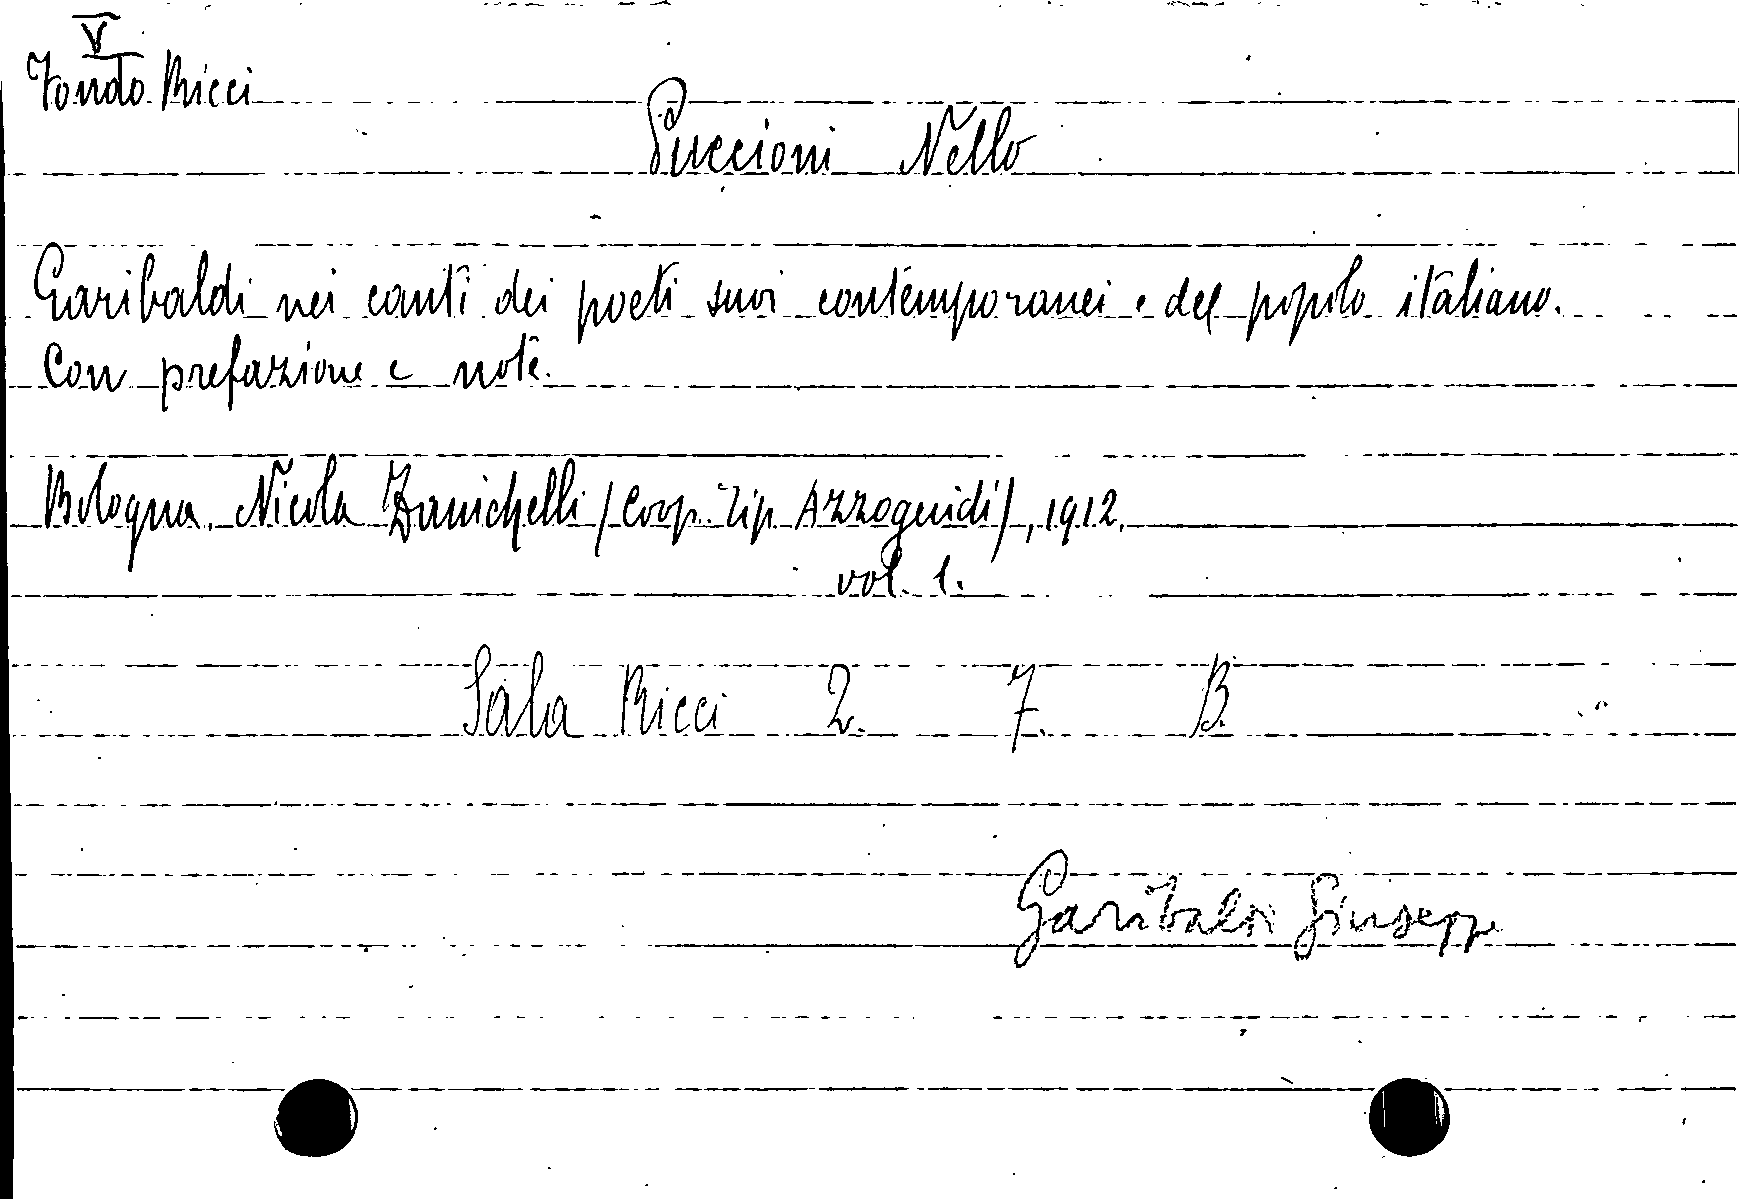 V
Fondo Ricci
Puccioni Nello
Garibaldi nei canti dei poeti suoi contemporanei e del popolo italiano.
Con prefazione e note.
Bologna, Nicola Zanichelli (Coop. Tip. Azzoguidi), 1912.
vol. 1.
Sala Ricci 2. 7. B.
Garibaldi Giuseppe